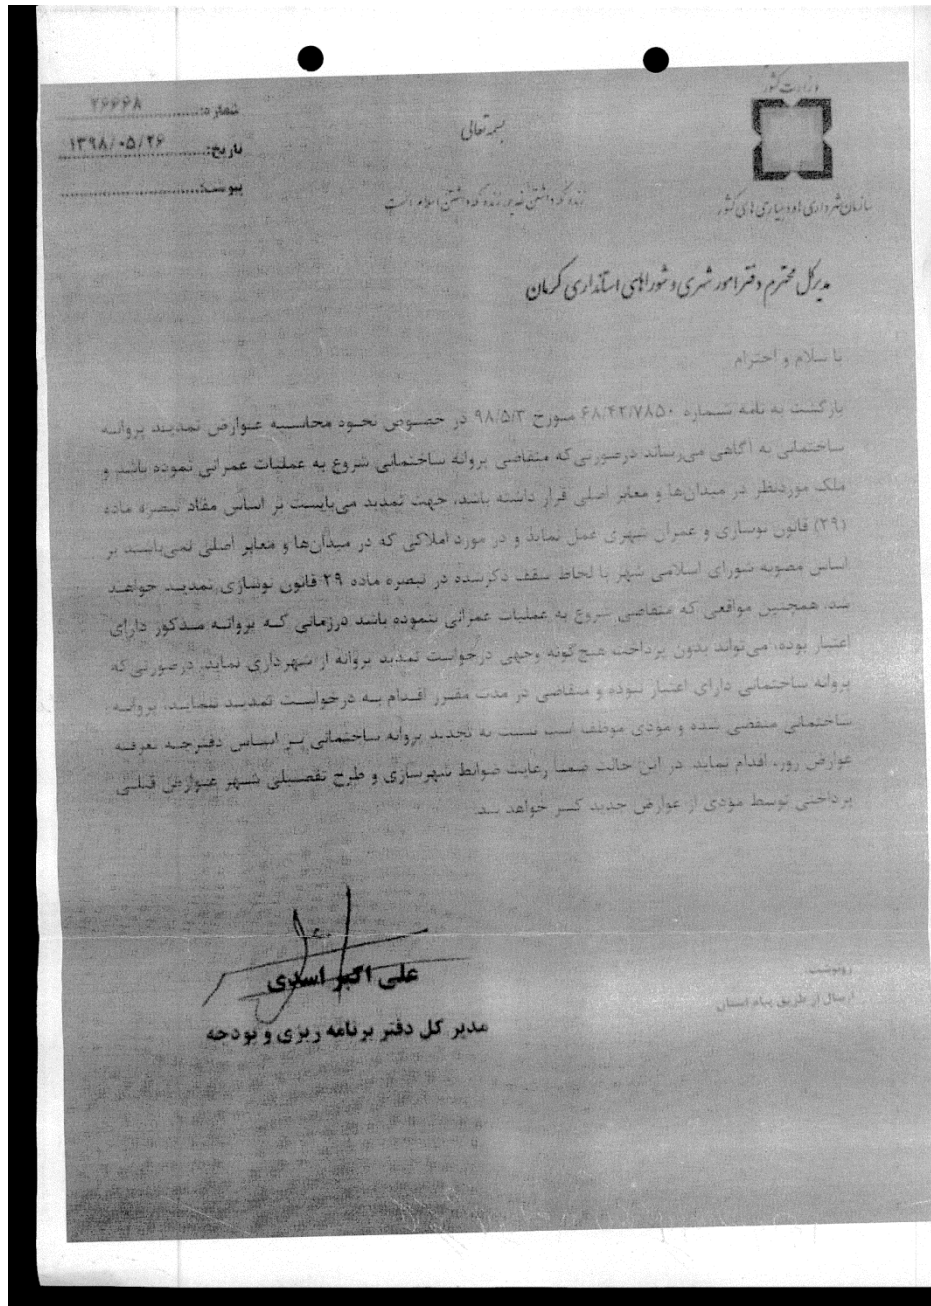 وزارت کشور
سازمان شهرداری ها و دهیاری های کشور
بسمه تعالی
زنده نگه داشتن غدیر، زنده نگه داشتن اسلام است
شماره: ۲۶۶۶۸
تاریخ: ۱۳۹۸/۰۵/۲۶
پیوست:
مدیرکل محترم دفتر امور شهری و شوراهای استانداری کرمان
با سلام و احترام
بازگشت به نامه شماره ۶۸/۴۲/۷۸۵۰ مورخ ۹۸/۵/۳ در خصوص نحوه محاسبه عوارض تمدید پروانه
ساختمانی به آگاهی می‌رساند درصورتی‌که متقاضی پروانه ساختمانی شروع به عملیات عمرانی نموده باشد و
ملک موردنظر در میدان‌ها و معابر اصلی قرار داشته باشد، جهت تمدید می‌بایست بر اساس مفاد تبصره ماده
(۲۹) قانون نوسازی و عمران شهری عمل نماید و در مورد املاکی که در میدان‌ها و معابر اصلی نمی‌باشند بر
اساس مصوبه شورای اسلامی شهر با لحاظ سقف ذکرشده در تبصره ماده ۲۹ قانون نوسازی تمدید خواهند
شد. همچنین مواقعی که متقاضی شروع به عملیات عمرانی ننموده باشد درزمانی که پروانه مذکور دارای
اعتبار بوده، می‌تواند بدون پرداخت هیچ‌گونه وجهی درخواست تمدید پروانه از شهرداری نماید. درصورتی‌که
پروانه ساختمانی دارای اعتبار نبوده و متقاضی در مدت مقرر اقدام به درخواست تمدید ننماید، پروانه
ساختمانی منقضی شده و مودی موظف است نسبت به تجدید پروانه ساختمانی بر اساس دفترچه تعرفه
عوارض روز، اقدام نماید. در این حالت ضمنا رعایت ضوابط شهرسازی و طرح تفصیلی شهر عوارض قبلی
پرداختی توسط مؤدی از عوارض جدید کسر خواهد شد.
علی اکبر اسدی
مدیر کل دفتر برنامه ریزی و بودجه
رونوشت:
ارسال از طریق پیام استان